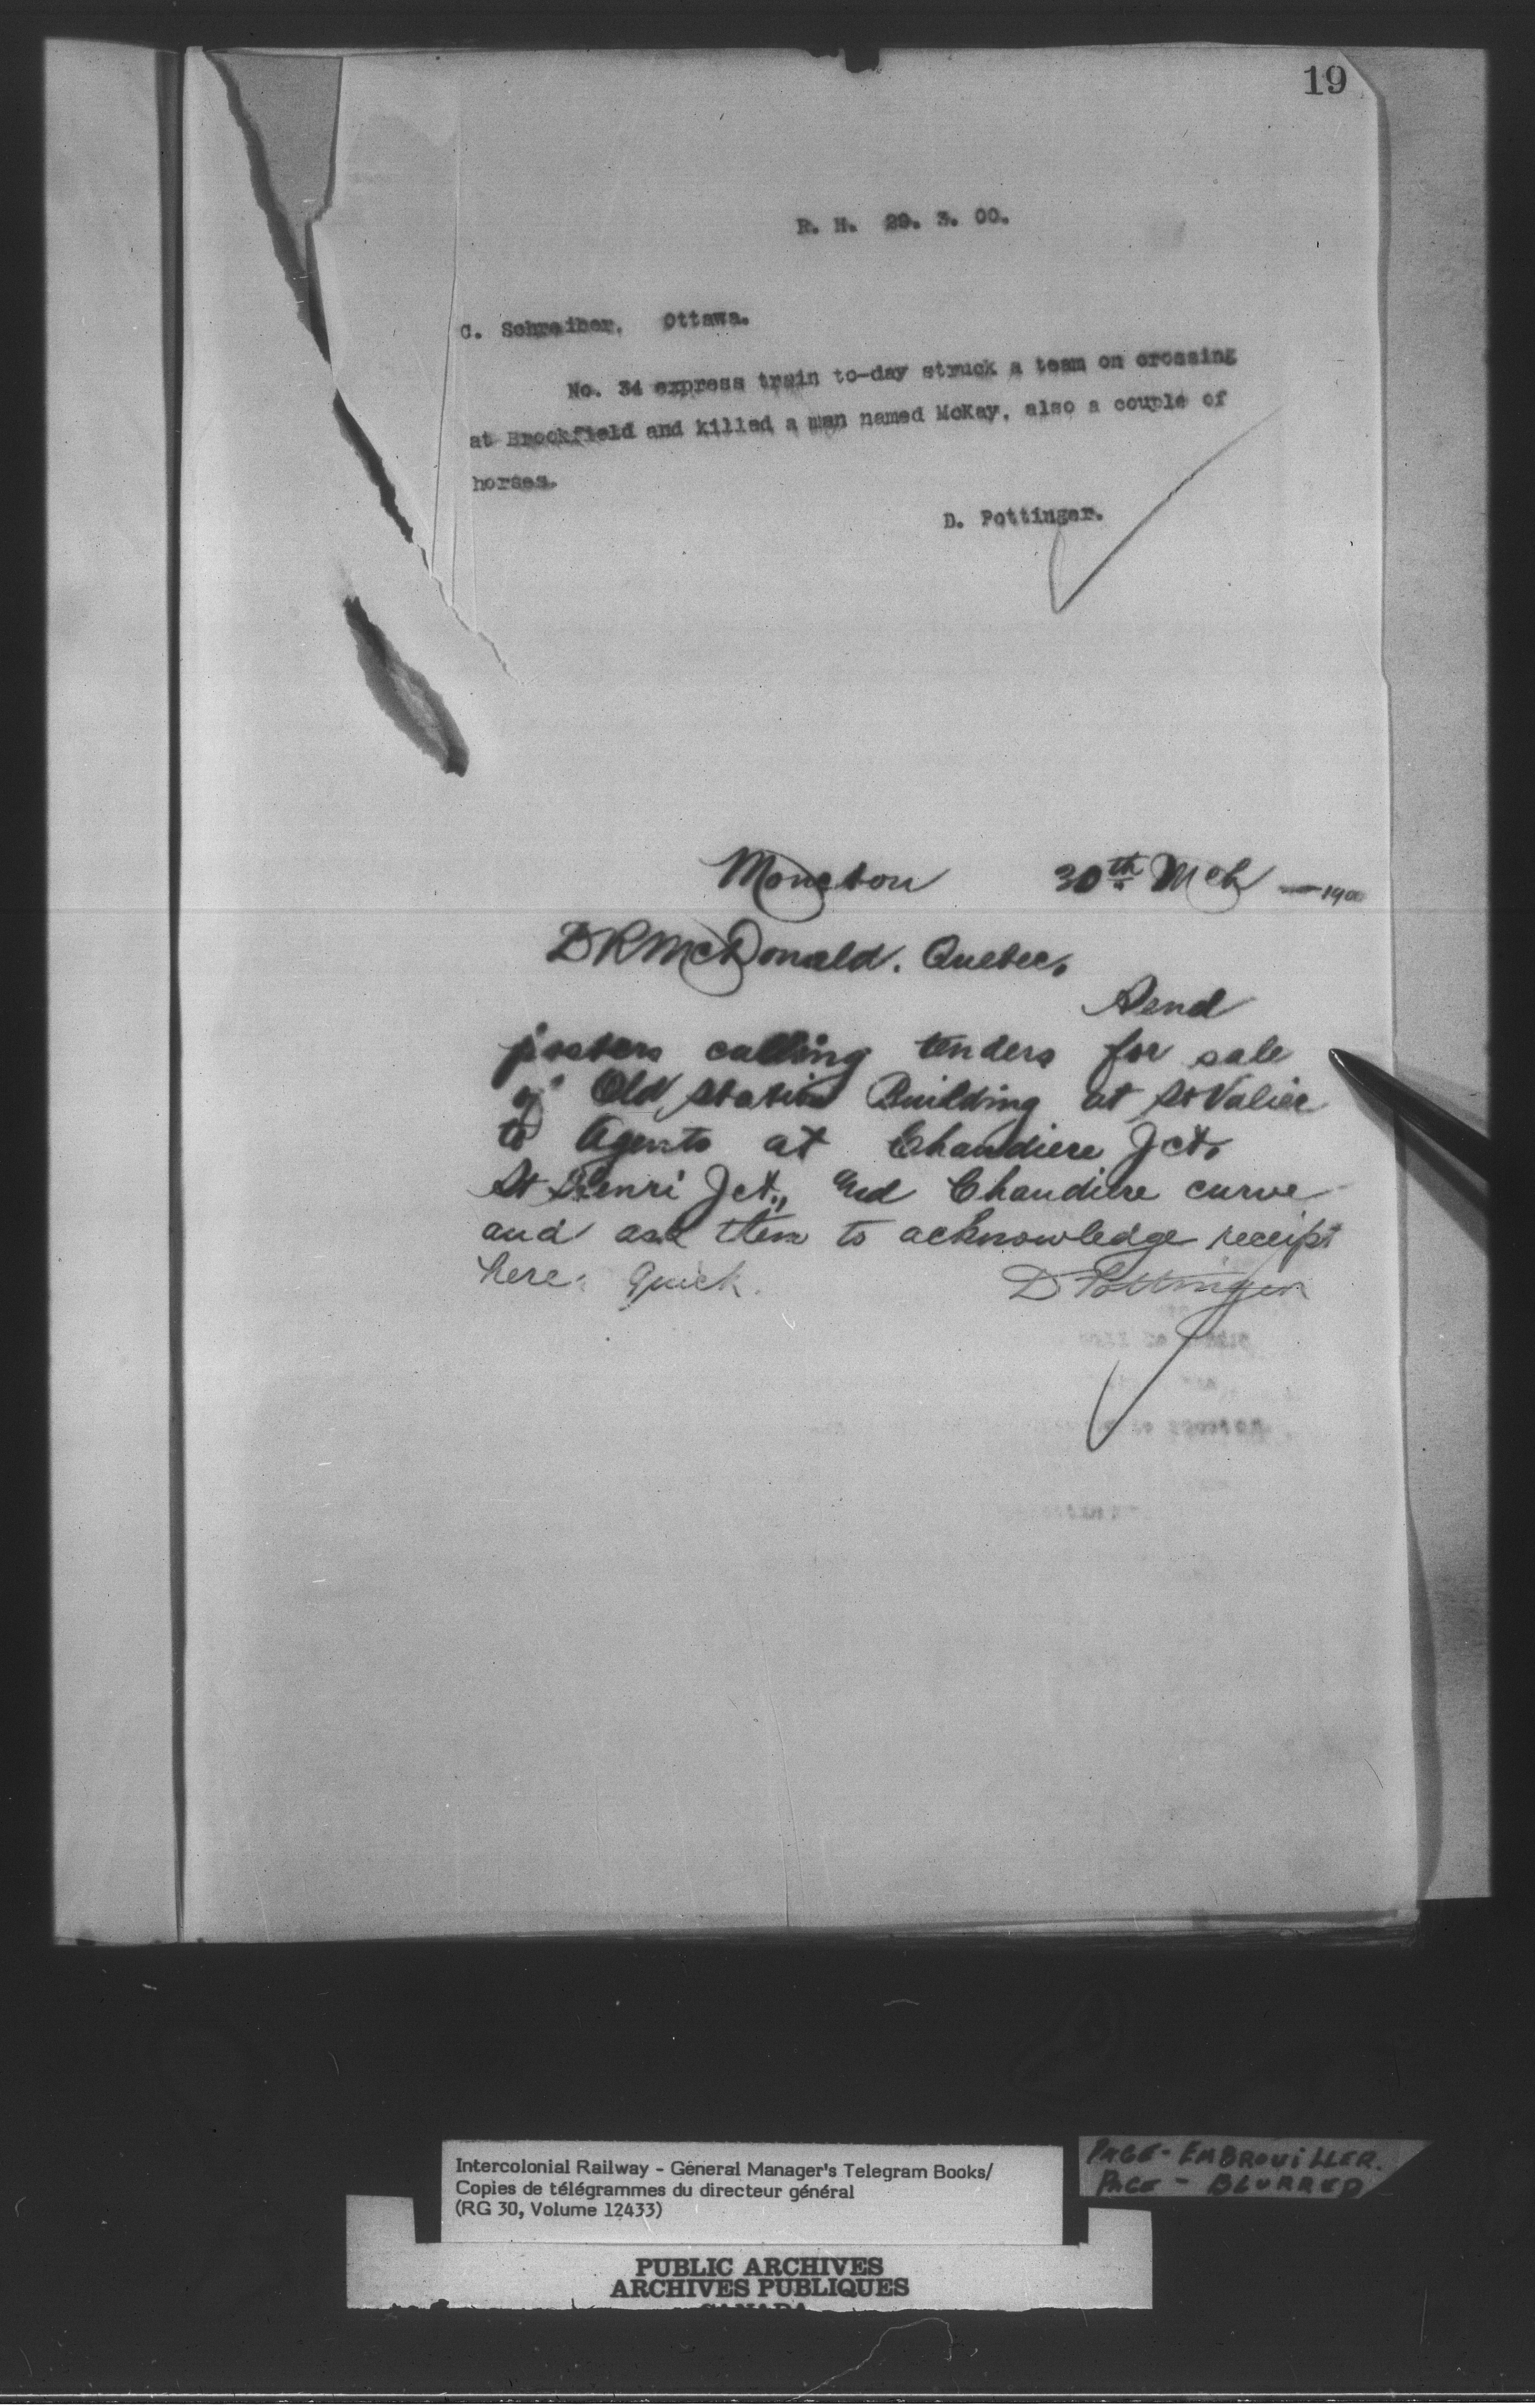 19
R. H. 29. 3. 00.
C. Schreiber, Ottawa.
No. 34 express train to-day struck a team on crossing
at Brookfield and killed a man named McKay, also a couple of
horses.
D. Pottinger.
Moncton 30th Mch — 1900
D R McDonald. Quebec.
Send
posters calling tenders for sale
of Old Station Building at St Valier
to Agents at Chaudiere Jct,
St Henri Jct., and Chaudiere curve
and ask them to acknowledge receipt
here. Quick.
D Pottinger
Intercolonial Railway - General Manager's Telegram Books/
Copies de télégrammes du directeur général
(RG 30, Volume 12433)
PAGE - EMBROUILLER.
PAGE - BLURRED
PUBLIC ARCHIVES
ARCHIVES PUBLIQUES
CANADA